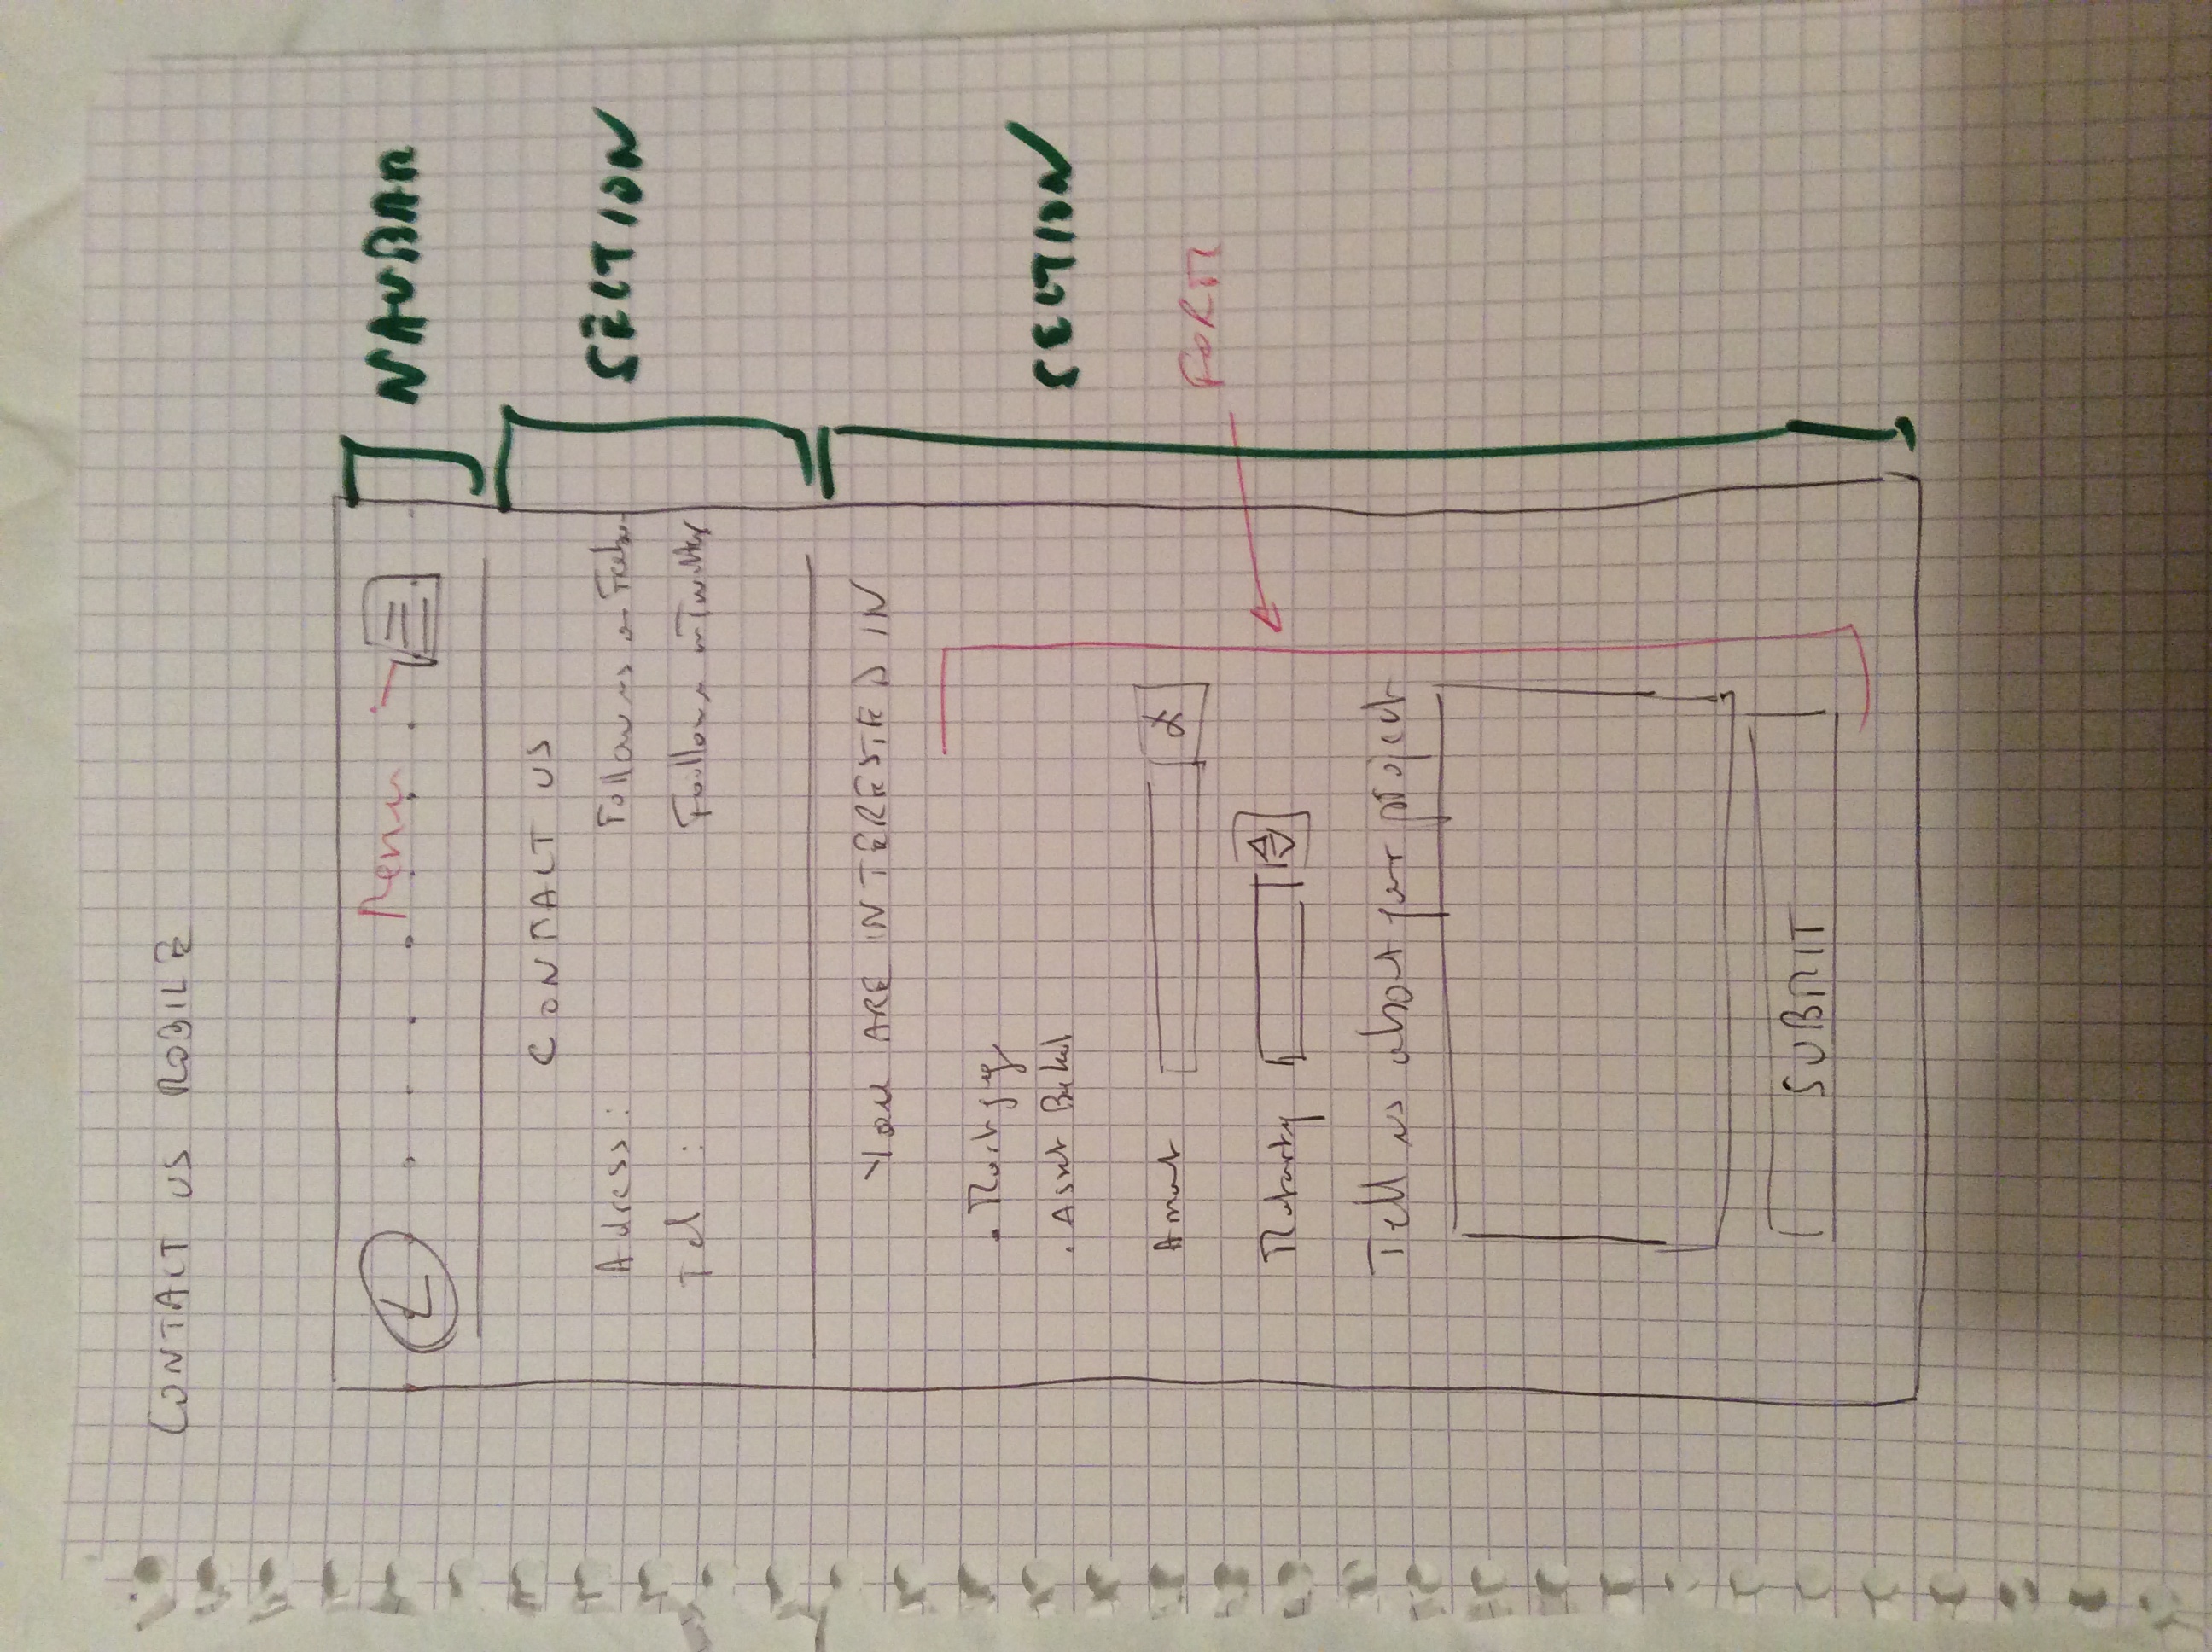 CONTACT US MOBILE
L Menu
NAVBAR
CONTACT US
Adress :
Follow us on
Tel :
Follow us on Twitter
SECTION
YOU ARE INTERESTED IN
. Mortgage
. Asset
SECTION
Amount
FORM
Maturity
Tell us about your project
SUBMIT